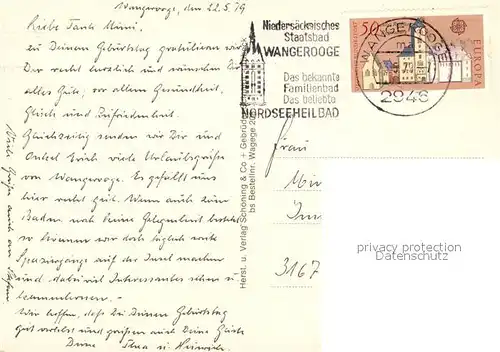 Wangerooge, den 22.5.79
Liebe Tante Mimi,
zu Deinem Geburtstag gratulieren wir
Dir recht herzlich und wünschen Dir
alles Gute, vor allem Gesundheit,
Glück und Zufriedenheit.
Gleichzeitig senden wir Dir und
Onkel Erich viele Urlaubsgrüße
von Wangerooge. Es gefällt uns
hier recht gut. Wenn auch zum
Baden noch keine Gelegenheit besteht
so können wir doch täglich weite
Spaziergänge auf der Insel machen
und dabei viel Interessantes sehen u.
kennenlernen.
Wir hoffen, daß Du Deinen Geburtstag
gut verlebst und grüßen auch Deine Gäste
Deine u. Heinrich
Viele Grüße auch an
Niedersächsisches
Staatsbad
WANGEROOGE
Das bekannte
Familienbad
Das beliebte
NORDSEEHEILBAD
50
EUROPA
WANGEROOGE
2946
Herst. u. Verlag Schöning & Co + Gebrüder
bs Bestellnr. Wagege 20
Frau
3167
privacy protection
DDR Museum
Privatsphärenschutz